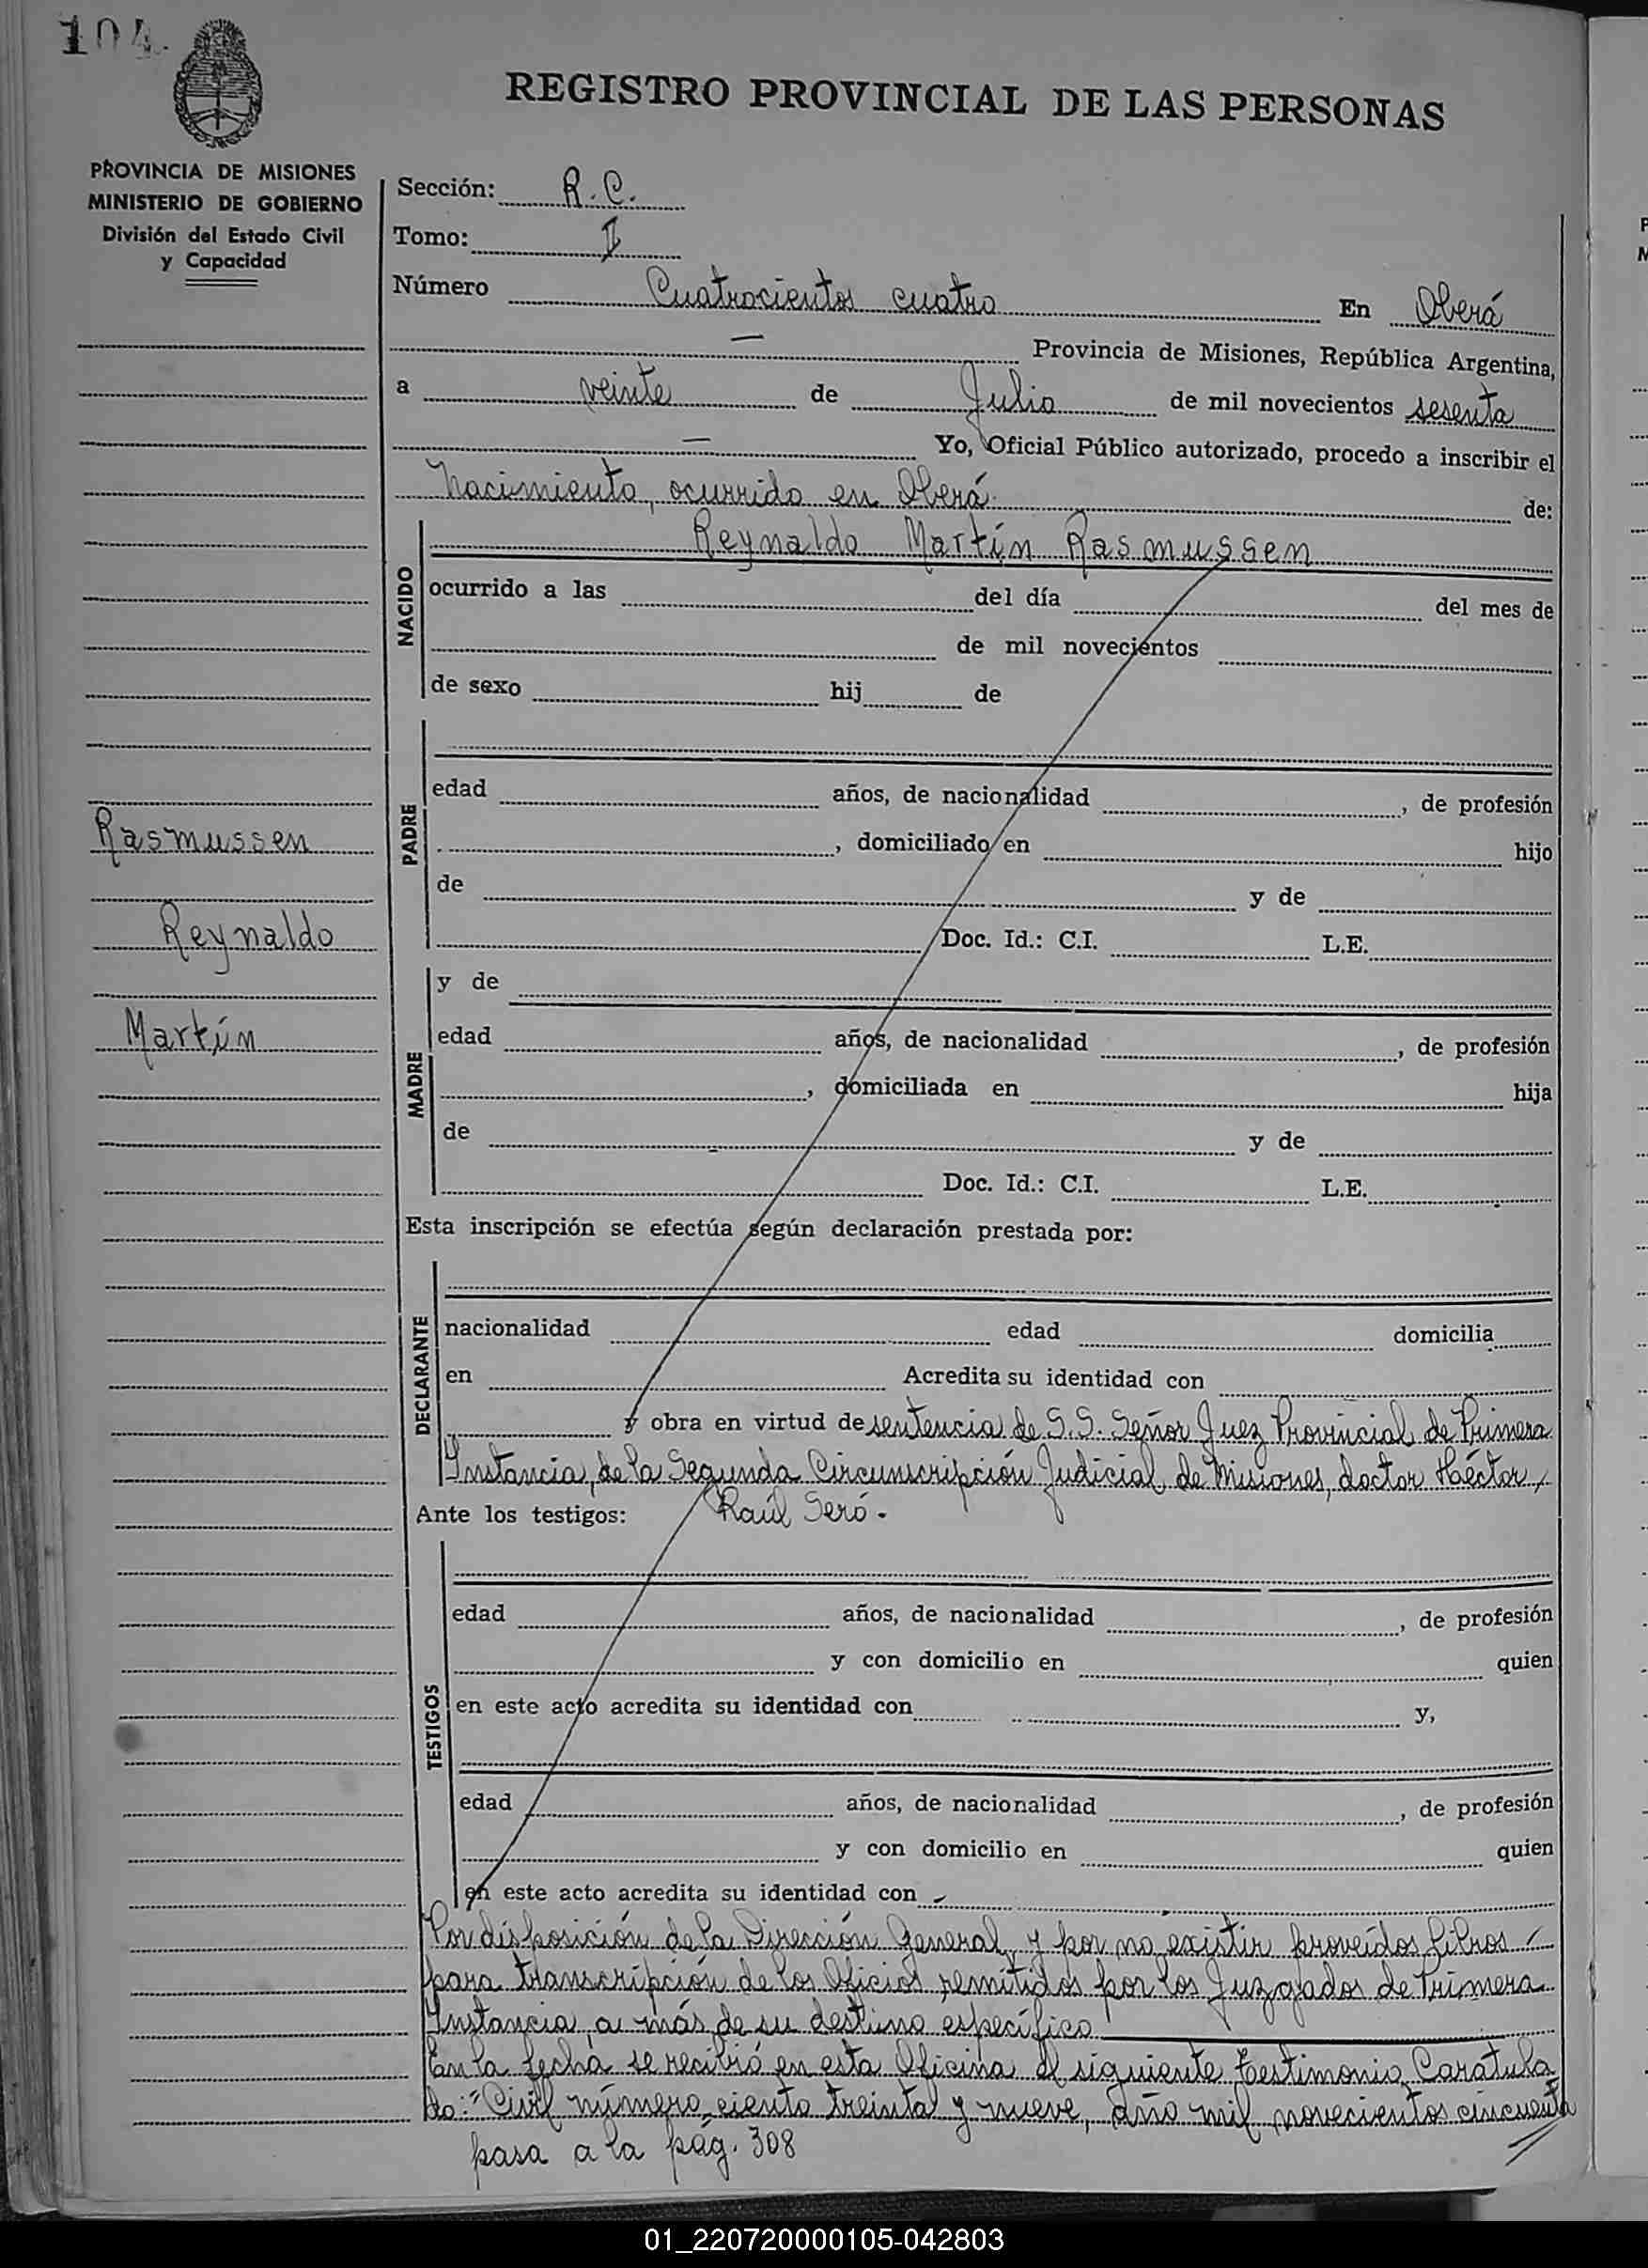 104.
REGISTRO PROVINCIAL DE LAS PERSONAS
PROVINCIA DE MISIONES
MINISTERIO DE GOBIERNO
División del Estado Civil
y Capacidad
Sección: R. C.
Tomo: II
Número Cuatrocientos cuatro En Oberá
— Provincia de Misiones, República Argentina,
a veinte de Julio de mil novecientos sesenta
— Yo, Oficial Público autorizado, procedo a inscribir el
Nacimiento, ocurrido en Oberá de:
NACIDO
Reynaldo Martín Rasmussen
ocurrido a las del día del mes de
de mil novecientos
de sexo hij de
Rasmussen
Reynaldo
Martín
PADRE
edad años, de nacionalidad , de profesión
, domiciliado en hijo
de y de
Doc. Id.: C.I. L.E.
MADRE
y de
edad años, de nacionalidad , de profesión
, domiciliada en hija
de y de
Doc. Id.: C.I. L.E.
Esta inscripción se efectúa según declaración prestada por:
DECLARANTE
nacionalidad edad domicilia
en Acredita su identidad con
y obra en virtud de sentencia de S.S. Señor Juez Provincial de Primera
Instancia, de la Segunda Circunscripción Judicial de Misiones, doctor Héctor
Ante los testigos: Raúl Seró.-
TESTIGOS
edad años, de nacionalidad , de profesión
y con domicilio en quien
en este acto acredita su identidad con y,
edad años, de nacionalidad , de profesión
y con domicilio en quien
en este acto acredita su identidad con
Por disposición de la Dirección General, y por no existir proveídos libros
para transcripción de los Oficios remitidos por los Juzgados de Primera
Instancia, a más de su destino específico
En la fecha se recibió en esta Oficina el siguiente testimonio, Caratula
do: "Civil número ciento treinta y nueve, año mil novecientos cincuenta
pasa a la pág. 308
01_220720000105-042803